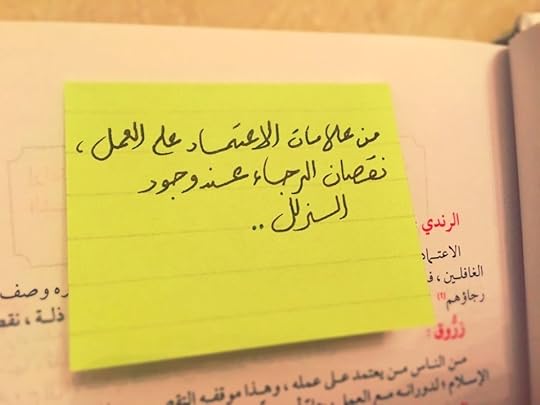 من علامات الاعتماد على العمل ،
نقصان الرجاء عند وجود
الزلل ..
الرندي :
الاعتماد
الغافلين ، ف
ره وصف
رجاؤهم (٢)
ذلة ، نقص
زرُّوق :
من الناس من يعتمد على عمله ، وهذا موقفه التقص
الإسلام لدورانه مع العمل